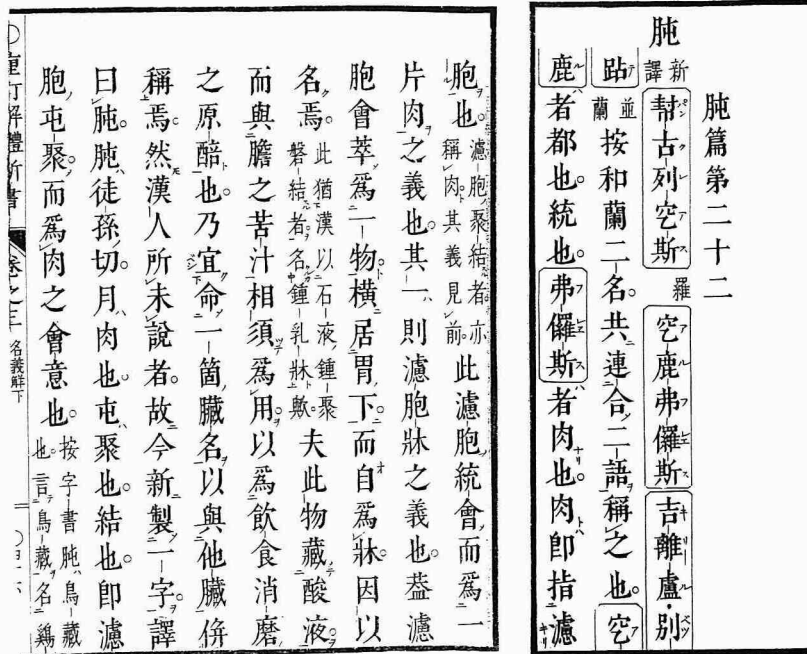 肫篇第二十二
肫新譯幇古列空斯羅空鹿弗儸斯吉離盧・別
跕並蘭按和蘭二名共連合二語稱之也空
鹿者都也統也弗儸斯者肉也肉卽指濾
胞也濾胞聚結者亦稱肉其義見前此濾胞統會而爲一
片肉之義也其一則濾胞牀之義也葢濾
胞會萃爲一物橫居胃下而自爲牀因以
名焉此猶漢以石液鍾聚磐結者名鍾乳牀歟夫此物藏酸液
而與膽之苦汁相須爲用以爲飮食消磨
之原醅也乃宜命一箇臟名以與他臟倂
稱焉然漢人所未說者故今新製一字譯
曰肫肫徒孫切月肉也屯聚也結也卽濾
胞屯聚而爲肉之會意也按字書肫鳥藏也言鳥藏名鷄
重訂解體新書 卷之 名義解下